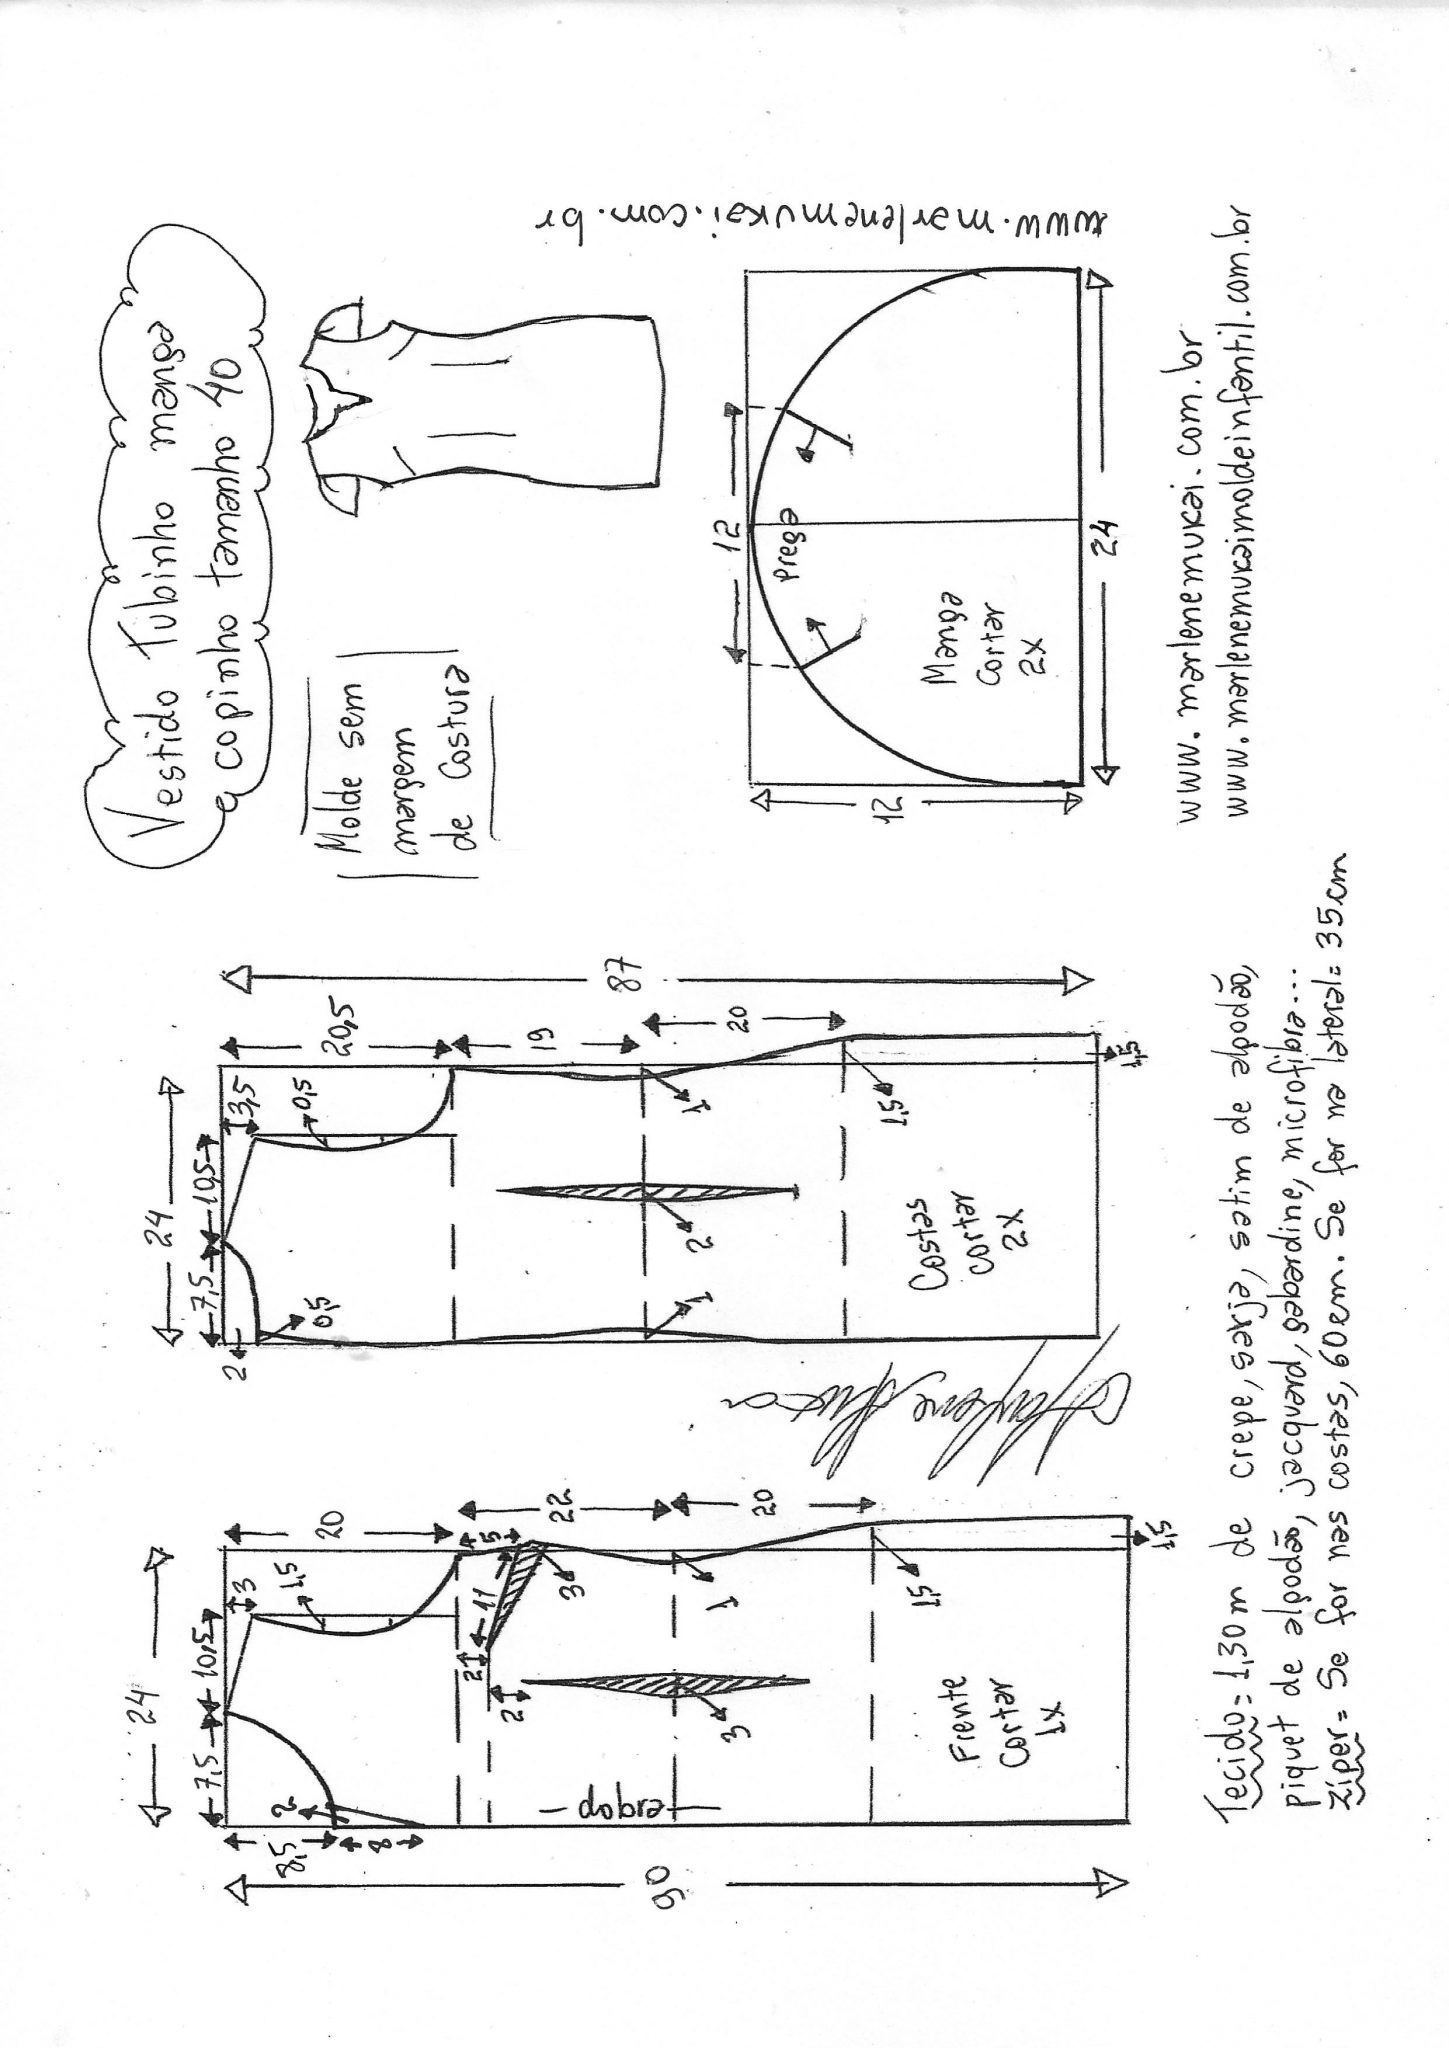 Vestido Tubinho manga
copinho tamanho 40
Molde sem
margem
de Costura
www.marlenemukai.com.br
24
7,5
10,5
3
1,5
20
2
8,5
8
5
22
11
3
2
2
3
1
20
1,5
1,5
dobra
90
Frente
Cortar
1x
24
7,5
10,5
3,5
0,5
20,5
2
0,5
19
1
2
1
20
1,5
1,5
87
Costas
cortar
2x
12
Prega
12
24
Manga
Cortar
2x
www.marlenemukai.com.br
www.marlenemukaimoldeinfantil.com.br
Tecido= 1,30m de crepe, sarja, satim de algodão,
piquet de algodão, jacquard, gabardine, microfibra...
Zíper= Se for nas costas, 60cm. Se for na lateral= 35cm